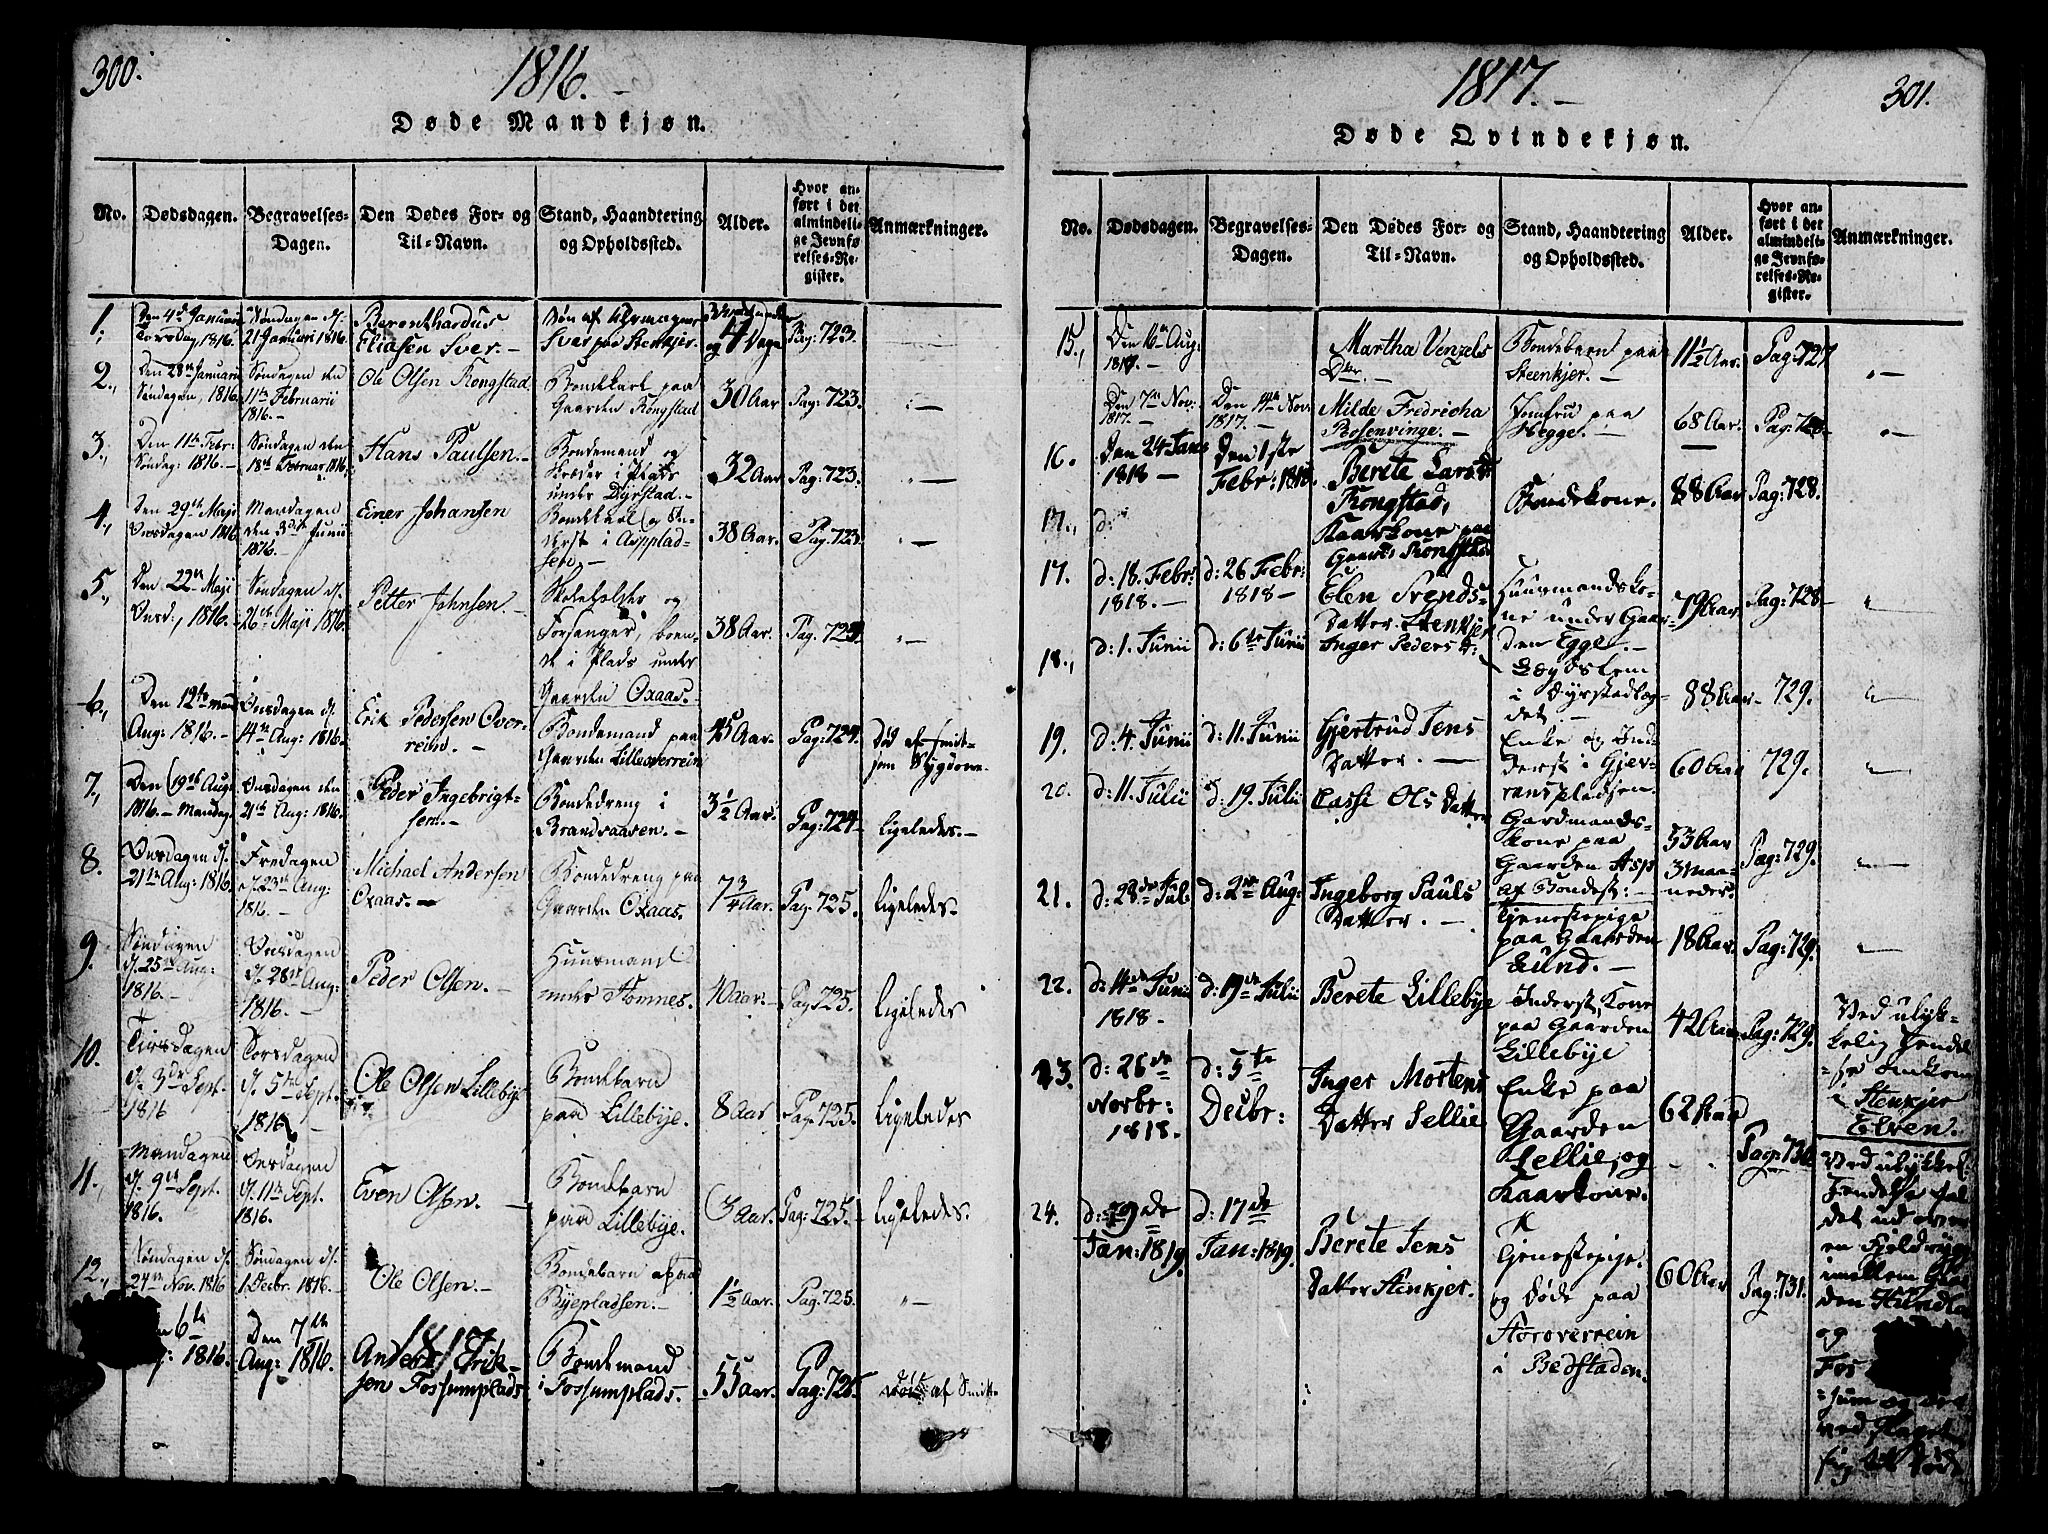 300.
1816. —
Døde Mandkjøn.
No. Dødsdagen. Begravelses-Dagen. Den Dødes For- og Til-Navn. Stand, Haandtering og Opholdssted. Alder. Hvor anført i det almindelige Jevnførelses-Register. Anmærkninger.
1. Den 4de Januari Torsdag 1816. Søndagen d. 21 Januari 1816. Berenthardus Eliasen Sver. — Søn af Sver paa Stenkjer. og 4 Dage Pag: 723. —
2. Den 28de Januari Søndagen, 1816. Søndagen den 11te Februarii 1816. — Ole Olsen Rongstad Bondekarl paa Gaarden Rongstad 30 Aar Pag: 723. —
3. Den 11te Febr: Søndag: 1816. — Søndagen den 18de Februar 1816. Hans Paulsen. — Bondemand og Skræder i Plads under Dyrstad. — 32 Aar Pag: 723. „—
4. Den 29de Maji Onsdagen 1816. Mandagen den 3die Junii 1816. — Einer Johansen Bondekarl og Inderst i Aspladsen. — 38 Aar. Pag: 723. „—
5. Den 22de Maji Onsd., 1816. Søndagen d. 26de Maji 1816. Petter Johnsen. — Skoleholder og Forsanger, boende i Plads under Gaarden Oxaas. 38 Aar. Pag. 723. „—
6. Den 12te Aug: 1816. — Onsdagen d. 14de Aug: 1816. Erik Pedersen Overreim. — Bondemand paa Gaarden Lilleoverrein 45 Aar. Pag: 724. Død af smitsom Sygdom.
7. Den 19de Aug: 1816. — Mandag. Onsdagen den 21de Aug: 1816. Peder Ingebrigtsen. — Bondedreng i Brandsaasen. — 3½ Aar. Pag: 724. ligeledes. —
8. Onsdagen d. 21de Aug: 1816. Fredagen d. 23de Aug: 1816. — Michael Andersen Oxaas. — Bondedreng paa Gaarden Oxaas. 7¾ Aar. Pag. 725. ligeledes.
9. Søndagen d. 25de Aug: 1816. — Onsdagen d. 28de Aug: 1816. Peder Olsen. — Huusmand under Homnes. 40 Aar. — Pag 725. ligeledes
10. Tirsdagen d. 3die Sept. 1816 Torsdagen d. 5te Sept. 1816. Ole Olsen Lillebye Bondebarn paa Lillebye. 8 Aar Pag. 725. ligeledes
11. Mandagen d. 9de Sept. 1816. Onsdagen d. 11te Sept. 1816. Even Olsen. — Bondebarn paa Lillebye. 3 Aar. Pag: 725. ligeledes.
12. Søndagen d. 24de Nov. 1816 Søndagen d. 1 Decbr. 1816. Ole Olsen. — Bondebarn af paa Byepladsen. — 1½ Aar. Pag. 725. „—
1817
6te 1816. Den 7de Aug: 1816. Anders Eriksen Fossumplads Bondemand i Fossumplads. 55 Aar. Pag: 726. død af Smitte
301.
1817. —
Døde Qvindekjøn.
No. Dødsdagen. Begravelses-Dagen. Den Dødes For- og Til-Navn. Stand, Haandtering og Opholdssted. Alder. Hvor anført i det almindelige Jevnførelses-Register. Anmærkninger.
15. Den 16de Aug: 1817. — Martha Venzels Dtr. — Bondebarn paa Steenkjer. — 11½ Aar. Pag: 727 „—
Den 7de Nov: 1817. — Den 14de Nov. 1817. — Milde Fredricha Rosenvinge. — Jomfru paa Hegge. — 68 Aar. Pag: 728. „—
16. Den 24 Jans 1818 — Den 1ste Febr: 1818. Berete Larsdt Rongstad, Kaarkone paa Gaard: Rongstad Bondekone. 88 Aar Pag: 728.
17., d:
17. d: 18. Febr: 1818. — d: 26 Febr: 1818 — Elen Svends Datter Stenkjer Huusmandskone under Gaarden Egge. — 79 Aar Pag: 728 — „—
18., d: 1. Junii d: 6te Junii Inger Peders D: Lægdslem i Dyrstadlægdet. — 88 Aar 729. „—
19. d: 4. Junii d: 11. Junii Gjertrud Jens Datter. — Enke og Inderst i Gjerranspladsen. 60 Aar 729. „—
20. d: 11. Julii d: 19. Julii Lasse Ols Datter Gardmandskone paa Gaarden Asp af Bondest: — 53 Aar 3 Maaneder. Pag: 729. „—
21. d: 28de Jul. d: 2den Aug: Ingeborg Pauls Datter. — Tjenestepige paa Gaarden Lund. — 18 Aar. Pag: 729. „—
22. d: 14de Junii 1818. d: 19de Julii Berete Lillebye Inderst, Kone paa Gaarden Lillebye 42 Aar Pag: 729. Ved ulykkelig Hendelse omkom i Stenkjer Elven.
23. d: 26de Novbr: 1818. d: 5te Decbr: Inger Mortens Datter Sellie Enke paa Gaarden Sellie, og Kaarkone. 62 Aar Pag: 730 Ved ulykkel. Hendelse faldet ud over en Fjeldrygg imellem Gaarden Stundla og Fos sum og der ved Slaget sig til Døde
24. d: 29de Jan: 1819. d: 17de Jan: 1819. Berete Jens Datter Stenkjer. Tjenestepige. og døde paa Storoverrein i Bedstaden. 60 Aar Pag: 731.